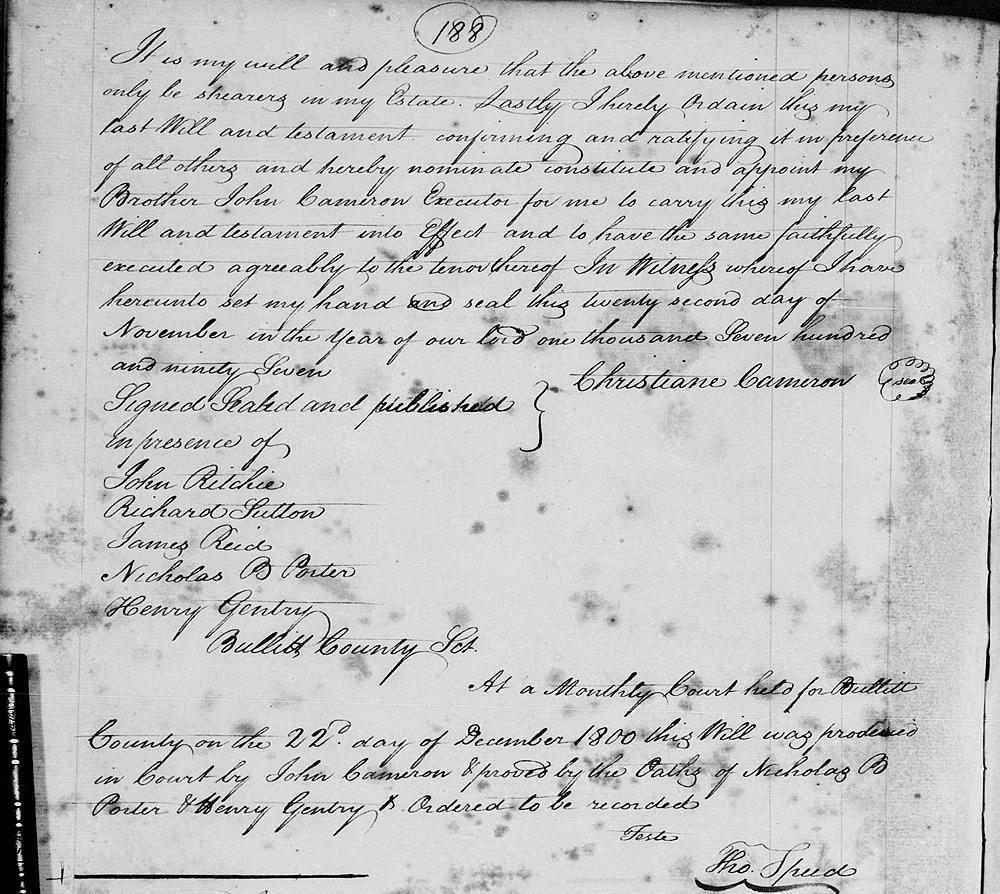 188
It is my will and pleasure that the above mentioned persons
only be shearers in my Estate. Lastly I hereby Ordain this my
last Will and testament confirming and ratifying it in preference
of all others and hereby nominate constitute and appoint my
Brother John Cameron Executor for me to carry this my last
Will and testament into Effect and to have the same faithfully
executed agreeably to the tenor thereof In Witness whereof I have
hereunto set my hand and seal this twenty second day of
November in the Year of our lord one thousand Seven hundred
and ninety Seven
Christiane Cameron seal
Signed Sealed and published
in presence of
John Ritchie
Richard Sutton
James Reid
Nicholas B Porter
Henry Gentry
Bullitt County Sct.
At a Monthly Court held for Bullitt
County on the 22d. day of December 1800 this Will was produced
in Court by John Cameron & proved by the Oaths of Nicholas B
Porter & Henry Gentry & Ordered to be recorded
Teste
Tho. Speed